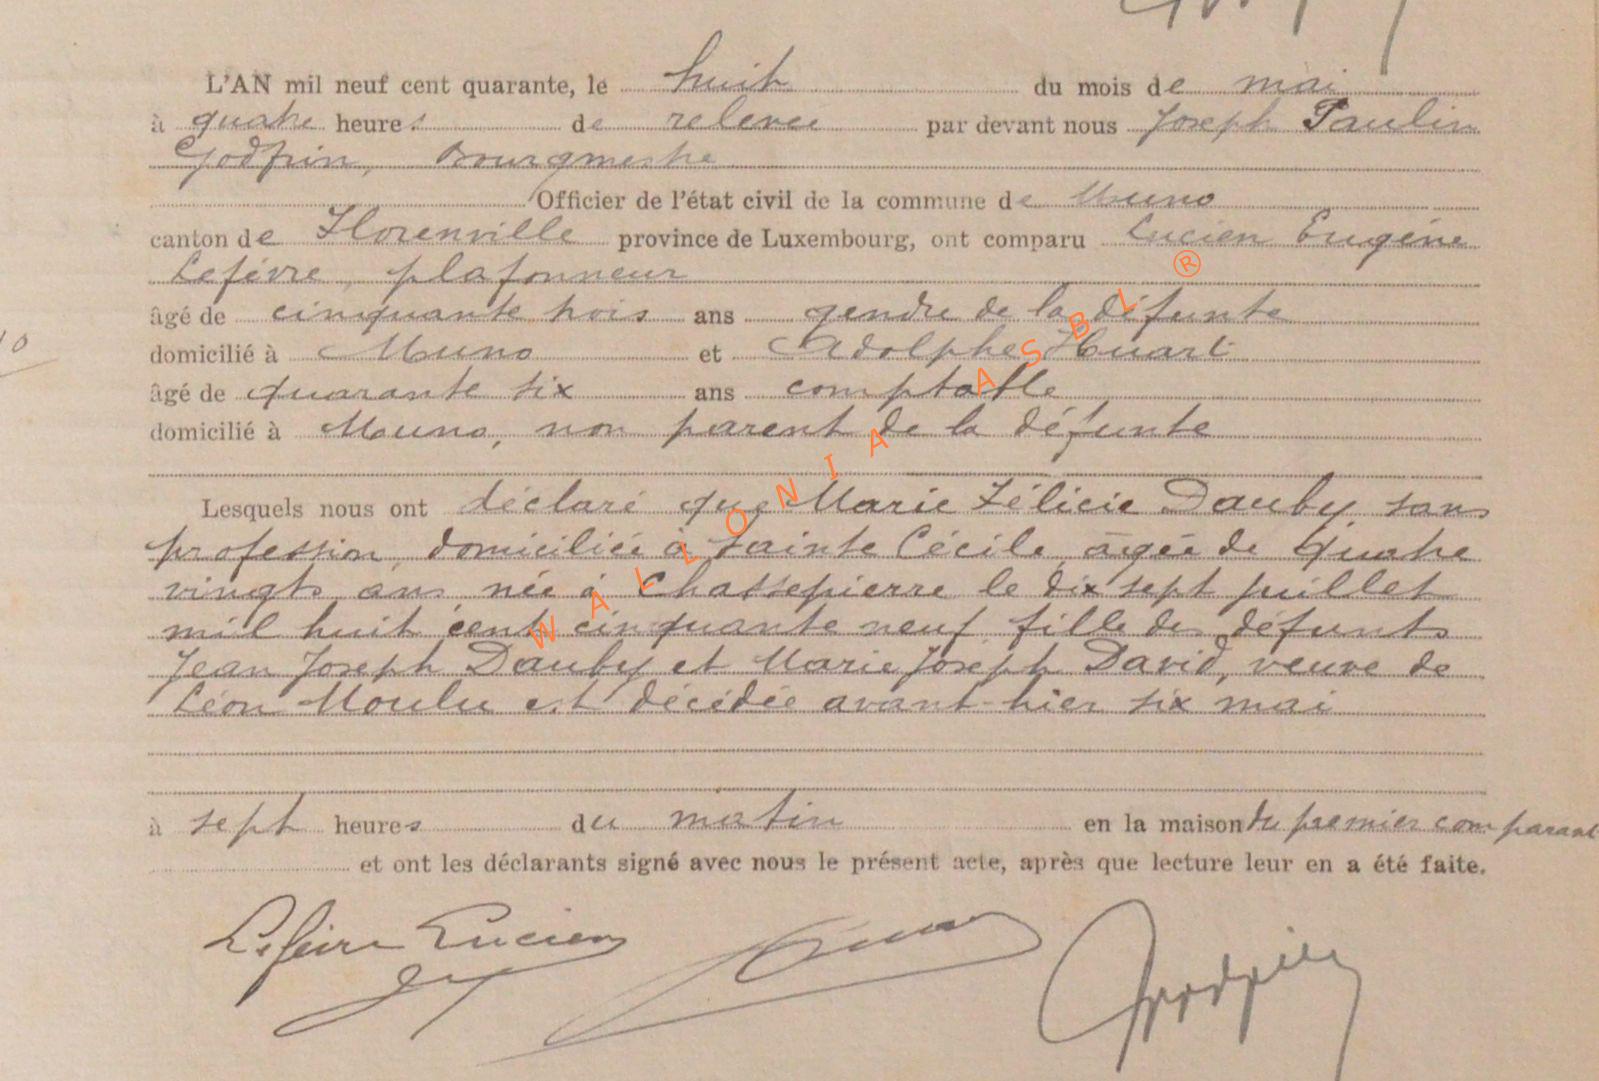 L'AN mil neuf cent quarante, le huit du mois de mai
à quatre heures de relevée par devant nous Joseph Paulin
Godfrin, Bourgmestre
Officier de l'état civil de la commune de Muno
canton de Florenville province de Luxembourg, ont comparu Lucien Eugène
Lefèvre, plafonneur
âgé de cinquante trois ans gendre de la défunte
domicilié à Muno et Adolphe Huart
âgé de quarante six ans comptable
domicilié à Muno, non parent de la défunte
Lesquels nous ont déclaré que Marie Félicie Dauby, sans
profession, domiciliée à Sainte Cécile, âgée de quatre
vingts ans, née à Chassepierre le dix sept juillet
mil huit cent cinquante neuf, fille des défunts
Jean Joseph Dauby et Marie Joseph David, veuve de
Léon Moulu est décédée avant-hier six mai
à sept heures du matin en la maison du premier comparant
et ont les déclarants signé avec nous le présent acte, après que lecture leur en a été faite.
Lefèvre Lucien
Godfrin
WALLONIA ASBL ®